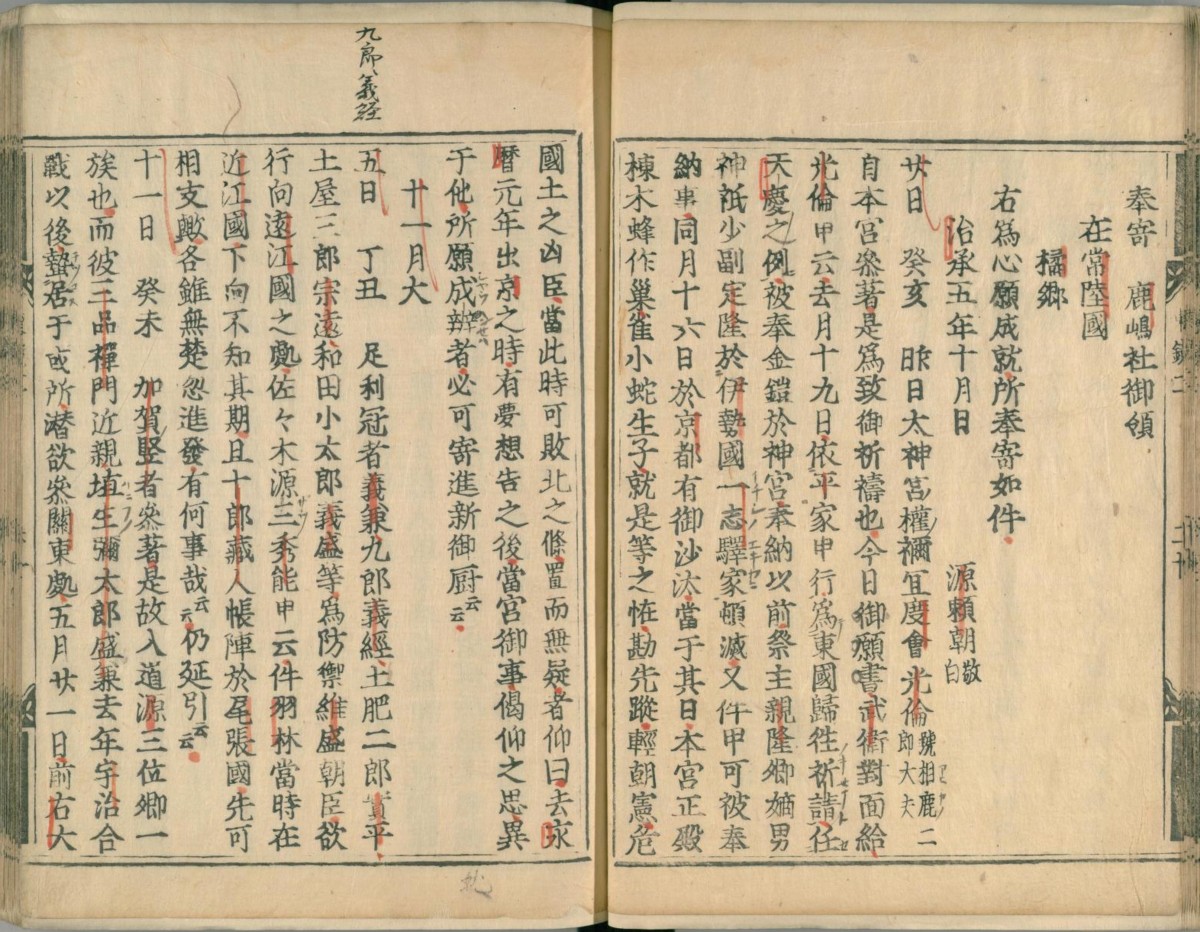 奉寄　鹿嶋社御領
在常陸國
橘郷
右爲心願成就所奉寄如件
治承五年十月日　源頼朝敬白
廿日　癸亥　昨日太神宮權禰宜慶會光倫號相鹿二郎大夫
自本宮參著是爲致御祈禱也今日御願書武衛對面給
光倫申云去月十九日依平家申行爲東國歸往祈請任
天慶之例被奉金鎧於神宮奉納以前祭主親隆卿嫡男
神祇少副定隆於伊勢國一志驛家頓滅又件甲可被奉
納事同月十六日於京都有御沙汰當于其日本宮正殿
棟木蜂作巢雀小蛇生子就是等之恠勘先蹤輕朝憲危
國土之凶臣當此時可敗北之條置而無疑者仰曰去永
暦元年出京之時有夢想告之後當宮御事偈仰之思異
于他所願成辨者必可寄進新御厨云云
十一月大
五日　丁丑　足利冠者義兼九郎義經土肥二郎實平
土屋三郎宗遠和田小太郎義盛等爲防禦維盛朝臣欲
行向遠江國之處佐々木源三秀能申云件羽林當時在
近江國下向不知其期且十郎藏人帳陣於尾張國先可
相支歟各雖無楚忽進發有何事哉云云仍延引云云
十一日　癸未　加賀竪者參著是故入道源三位卿一
族也而彼三品禪門近親埴生彌太郎盛兼去年宇治合
戰以後蟄居于或所潜欲參關東處五月廿一日前右大
九郎義經